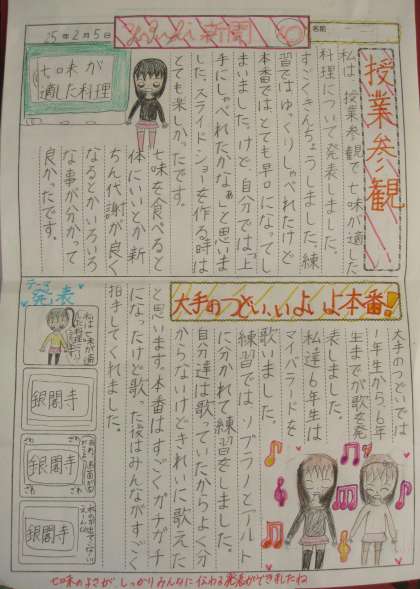 25年2月5日
新聞
名前
授業参観
私は、授業参観で七味が適した
料理について発表しました。
すごくきんちょうしました。練
習ではゆっくりしゃべれたけど
本番ではとても早口になってし
まいました。けど、自分では「上
手にしゃべれたかなぁ」と思いま
した。スライドショーを作る時は
とても楽しかったです。
七味を食べると
体にいいとか新
ちん代謝が良く
なるとかいろいろ
な事が分かって
良かったです。
七味が
適した料理
大手のつどい、いよいよ本番!
大手のつどいでは
1年生から6年
生までが歌を発
表しました。
私達6年生は
マイバラードを
歌いました。
練習ではソプラノとアルト
に分かれて練習をしました。
自分達は歌っていたからよく分
からないけどきれいに歌えた
と思います。本番はすごくガチガチ
になったけど歌った後はみんながすごく
拍手してくれました。
発表
私は七味が適
した料理
銀閣寺
ざわ
ざわ
銀閣寺
ざわ
ざわ
銀閣寺
七味のよさがしっかりみんなに伝わる発表ができましたね